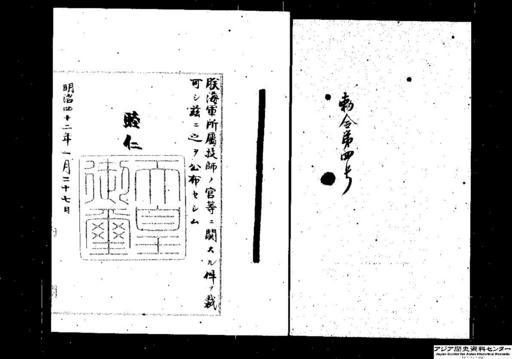 勅令第四号
朕海軍所属技師ノ官等ニ関スル件ヲ裁
可シ茲ニ之ヲ公布セシム
睦仁
天皇御璽
明治四十二年一月二十七日
アジア歴史資料センター
Japan Center for Asian Historical Records